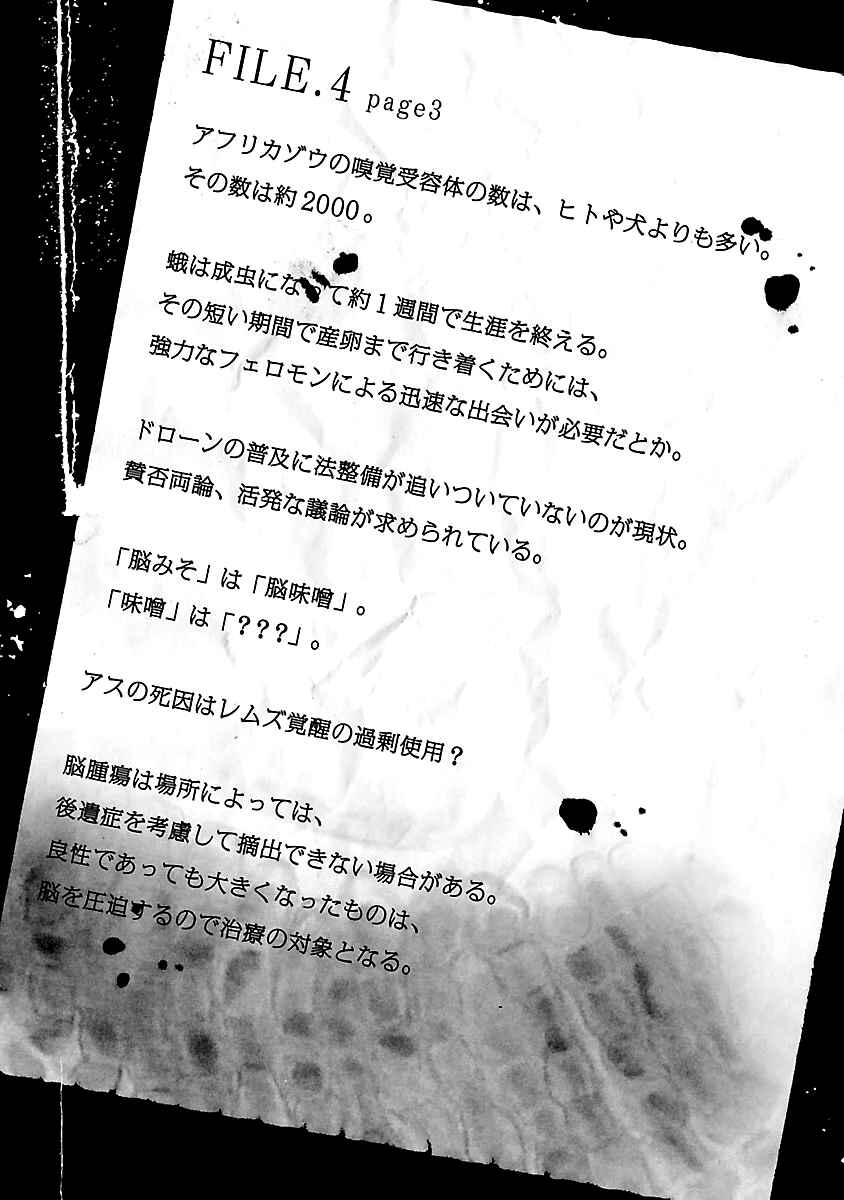 FILE.4 page3
アフリカゾウの嗅覚受容体の数は、ヒトや犬よりも多い。
その数は約2000。
蛾は成虫になって約1週間で生涯を終える。
その短い期間で産卵まで行き着くためには、
強力なフェロモンによる迅速な出会いが必要だとか。
ドローンの普及に法整備が追いついていないのが現状。
賛否両論、活発な議論が求められている。
「脳みそ」は「脳味噌」。
「味噌」は「???」。
アスの死因はレムズ覚醒の過剰使用?
脳腫瘍は場所によっては、
後遺症を考慮して摘出できない場合がある。
良性であっても大きくなったものは、
脳を圧迫するので治療の対象となる。